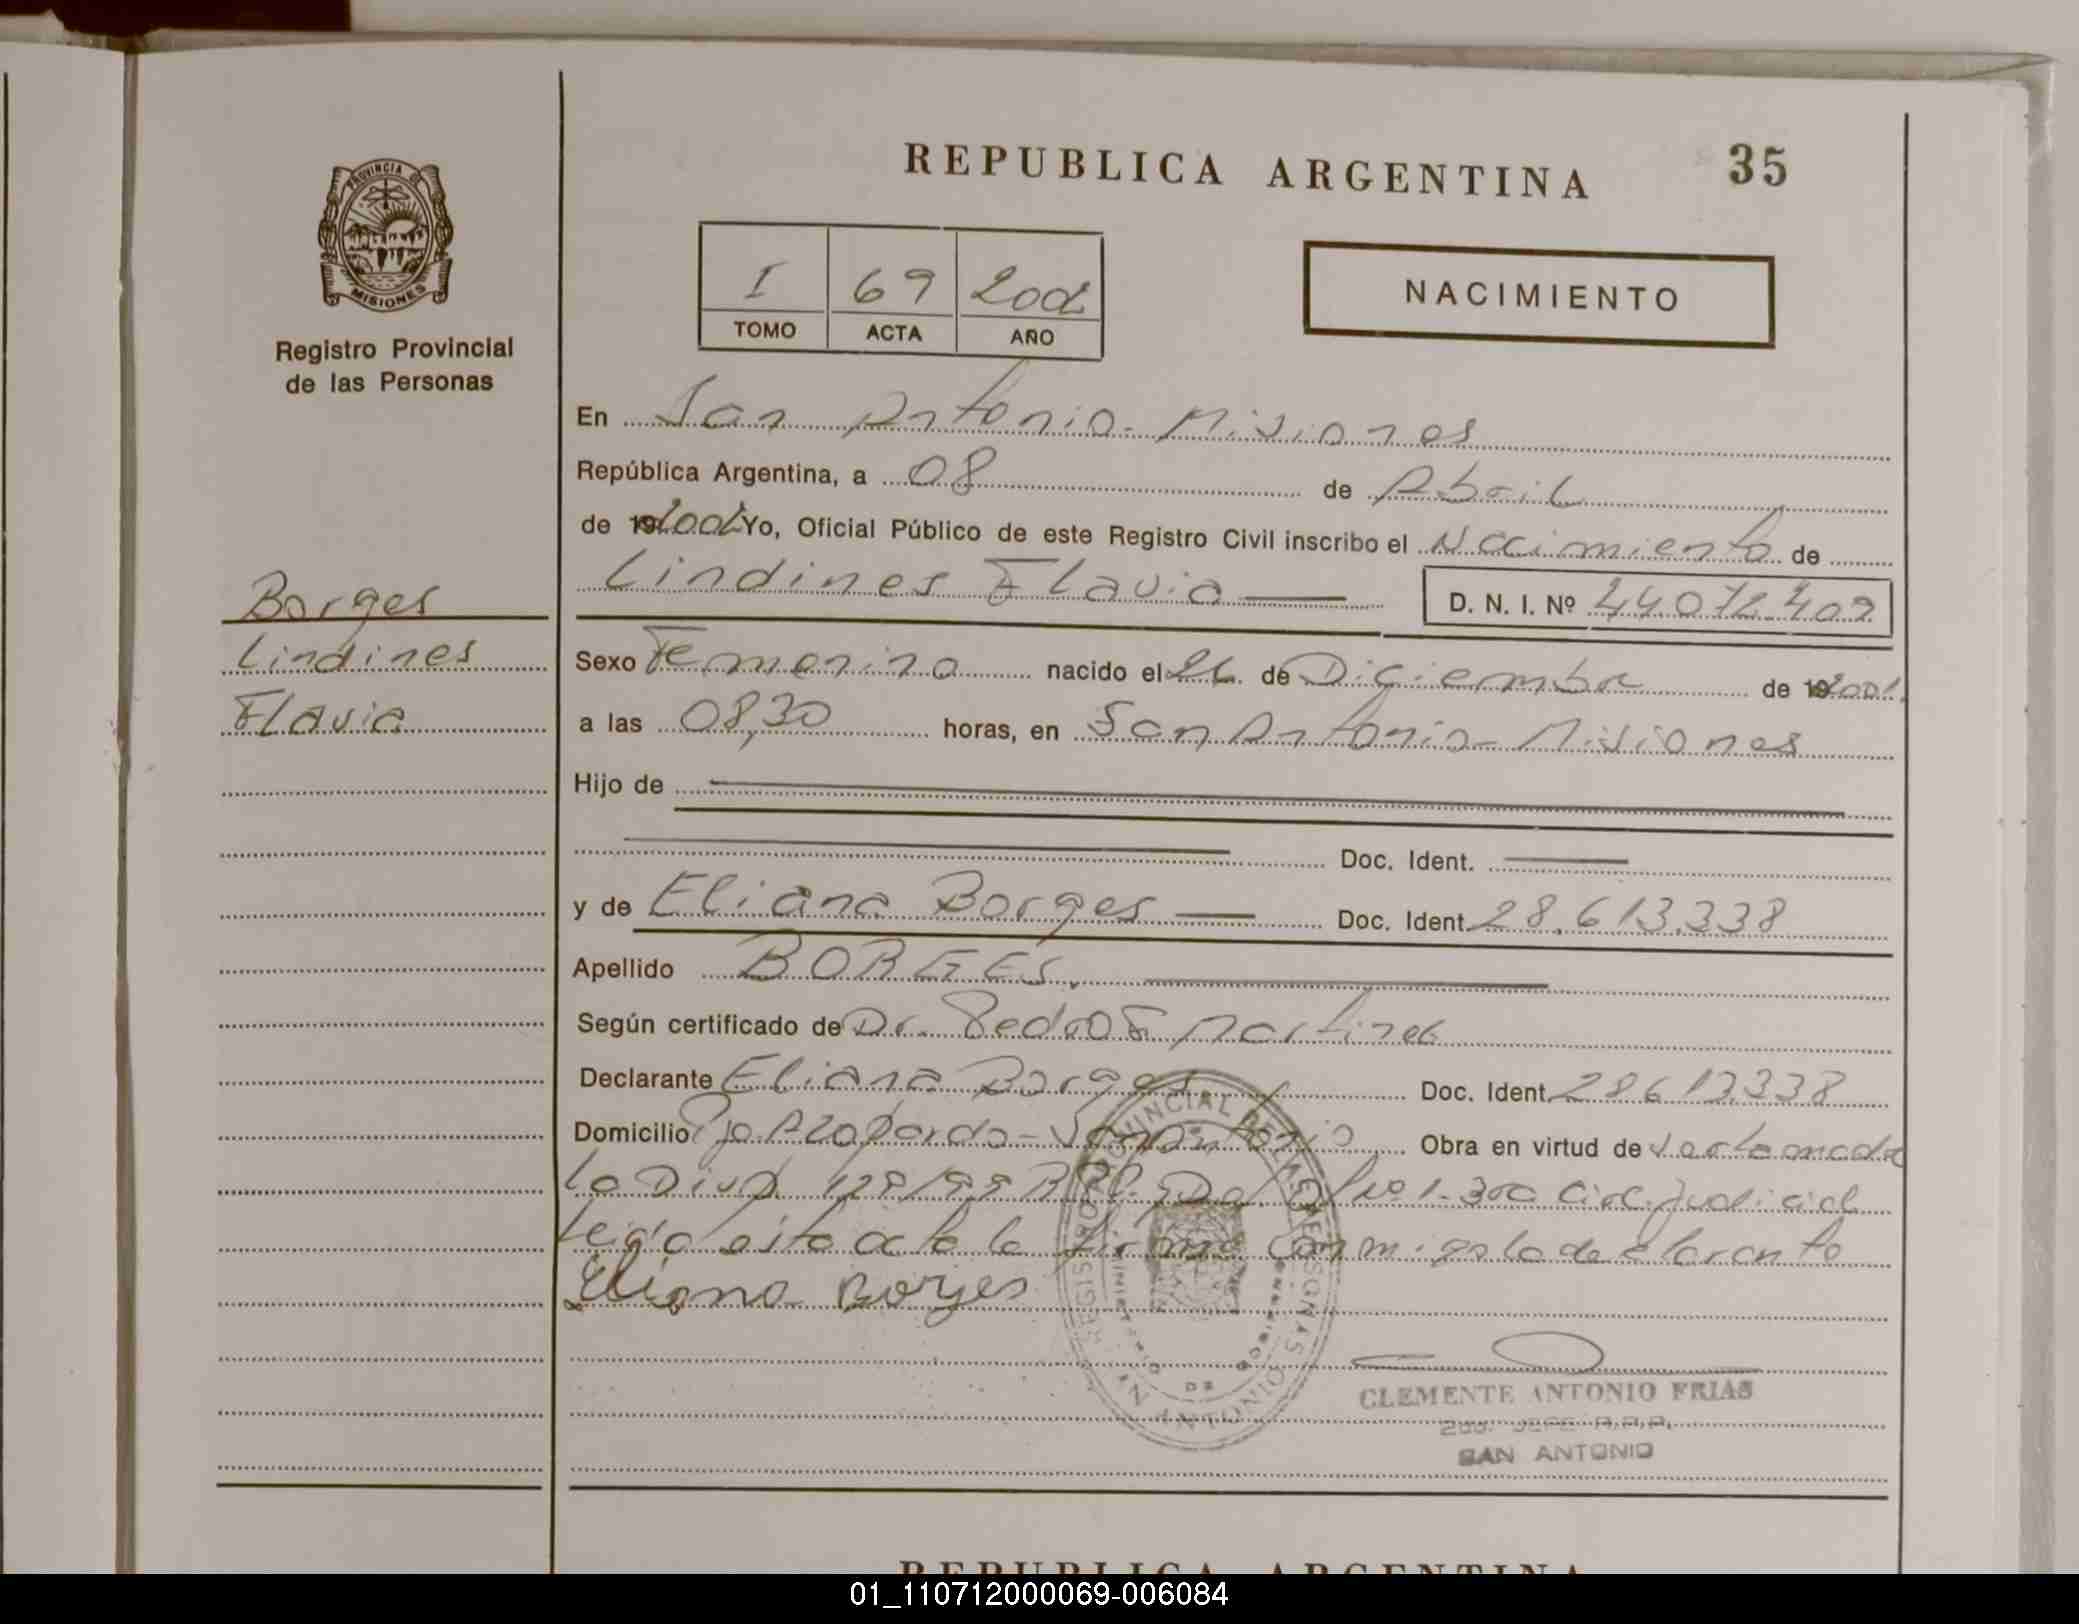 REPUBLICA ARGENTINA 35
PROVINCIA DE
MISIONES
Registro Provincial
de las Personas
I 69 2002
TOMO ACTA AÑO
NACIMIENTO
En San Antonio - Misiones
República Argentina, a 08 de Abril
de 19 2002 Yo, Oficial Público de este Registro Civil inscribo el Nacimiento de
Lindines Flavia
D. N. I. Nº 44.072.402
Borges
Lindines
Flavia
Sexo Femenino nacido el 26 de Diciembre de 19 2001.
a las 08,30 horas, en San Antonio - Misiones
Hijo de
Doc. Ident.
y de Eliana Borges Doc. Ident. 28.613.338
Apellido BORGES.
Según certificado de Dr. Pedro F Martinez
Declarante Eliana Borges Doc. Ident. 28613.338
Domicilio Pje Azopardo - San Antonio Obra en virtud de
la 128/99 Nº 1 - 3ra Circ. Judicial
leida esta acta la firma conmigo la declarante
Eliana Borges
REGISTRO PROVINCIAL DE LAS PERSONAS
SAN ANTONIO
CLEMENTE ANTONIO FRIAS
JEFE R.P.P.
SAN ANTONIO
REPUBLICA ARGENTINA
01_110712000069-006084